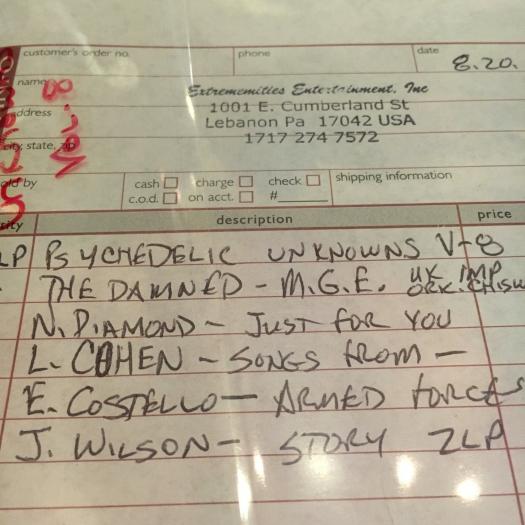 customer's order no. phone date 8.20.
name
Extrememities Entertainment, Inc
1001 E. Cumberland St
address
Lebanon Pa 17042 USA
city, state, zip
1717 274 7572
sold by cash charge check shipping information
c.o.d. on acct. #
description price
LP PSYCHEDELIC UNKNOWNS V-8
THE DAMNED - M.G.E. UK IMP
N. DIAMOND - JUST FOR YOU
L. COHEN - SONGS FROM -
E. COSTELLO - ARMED FORCES
J. WILSON - STORY 2LP